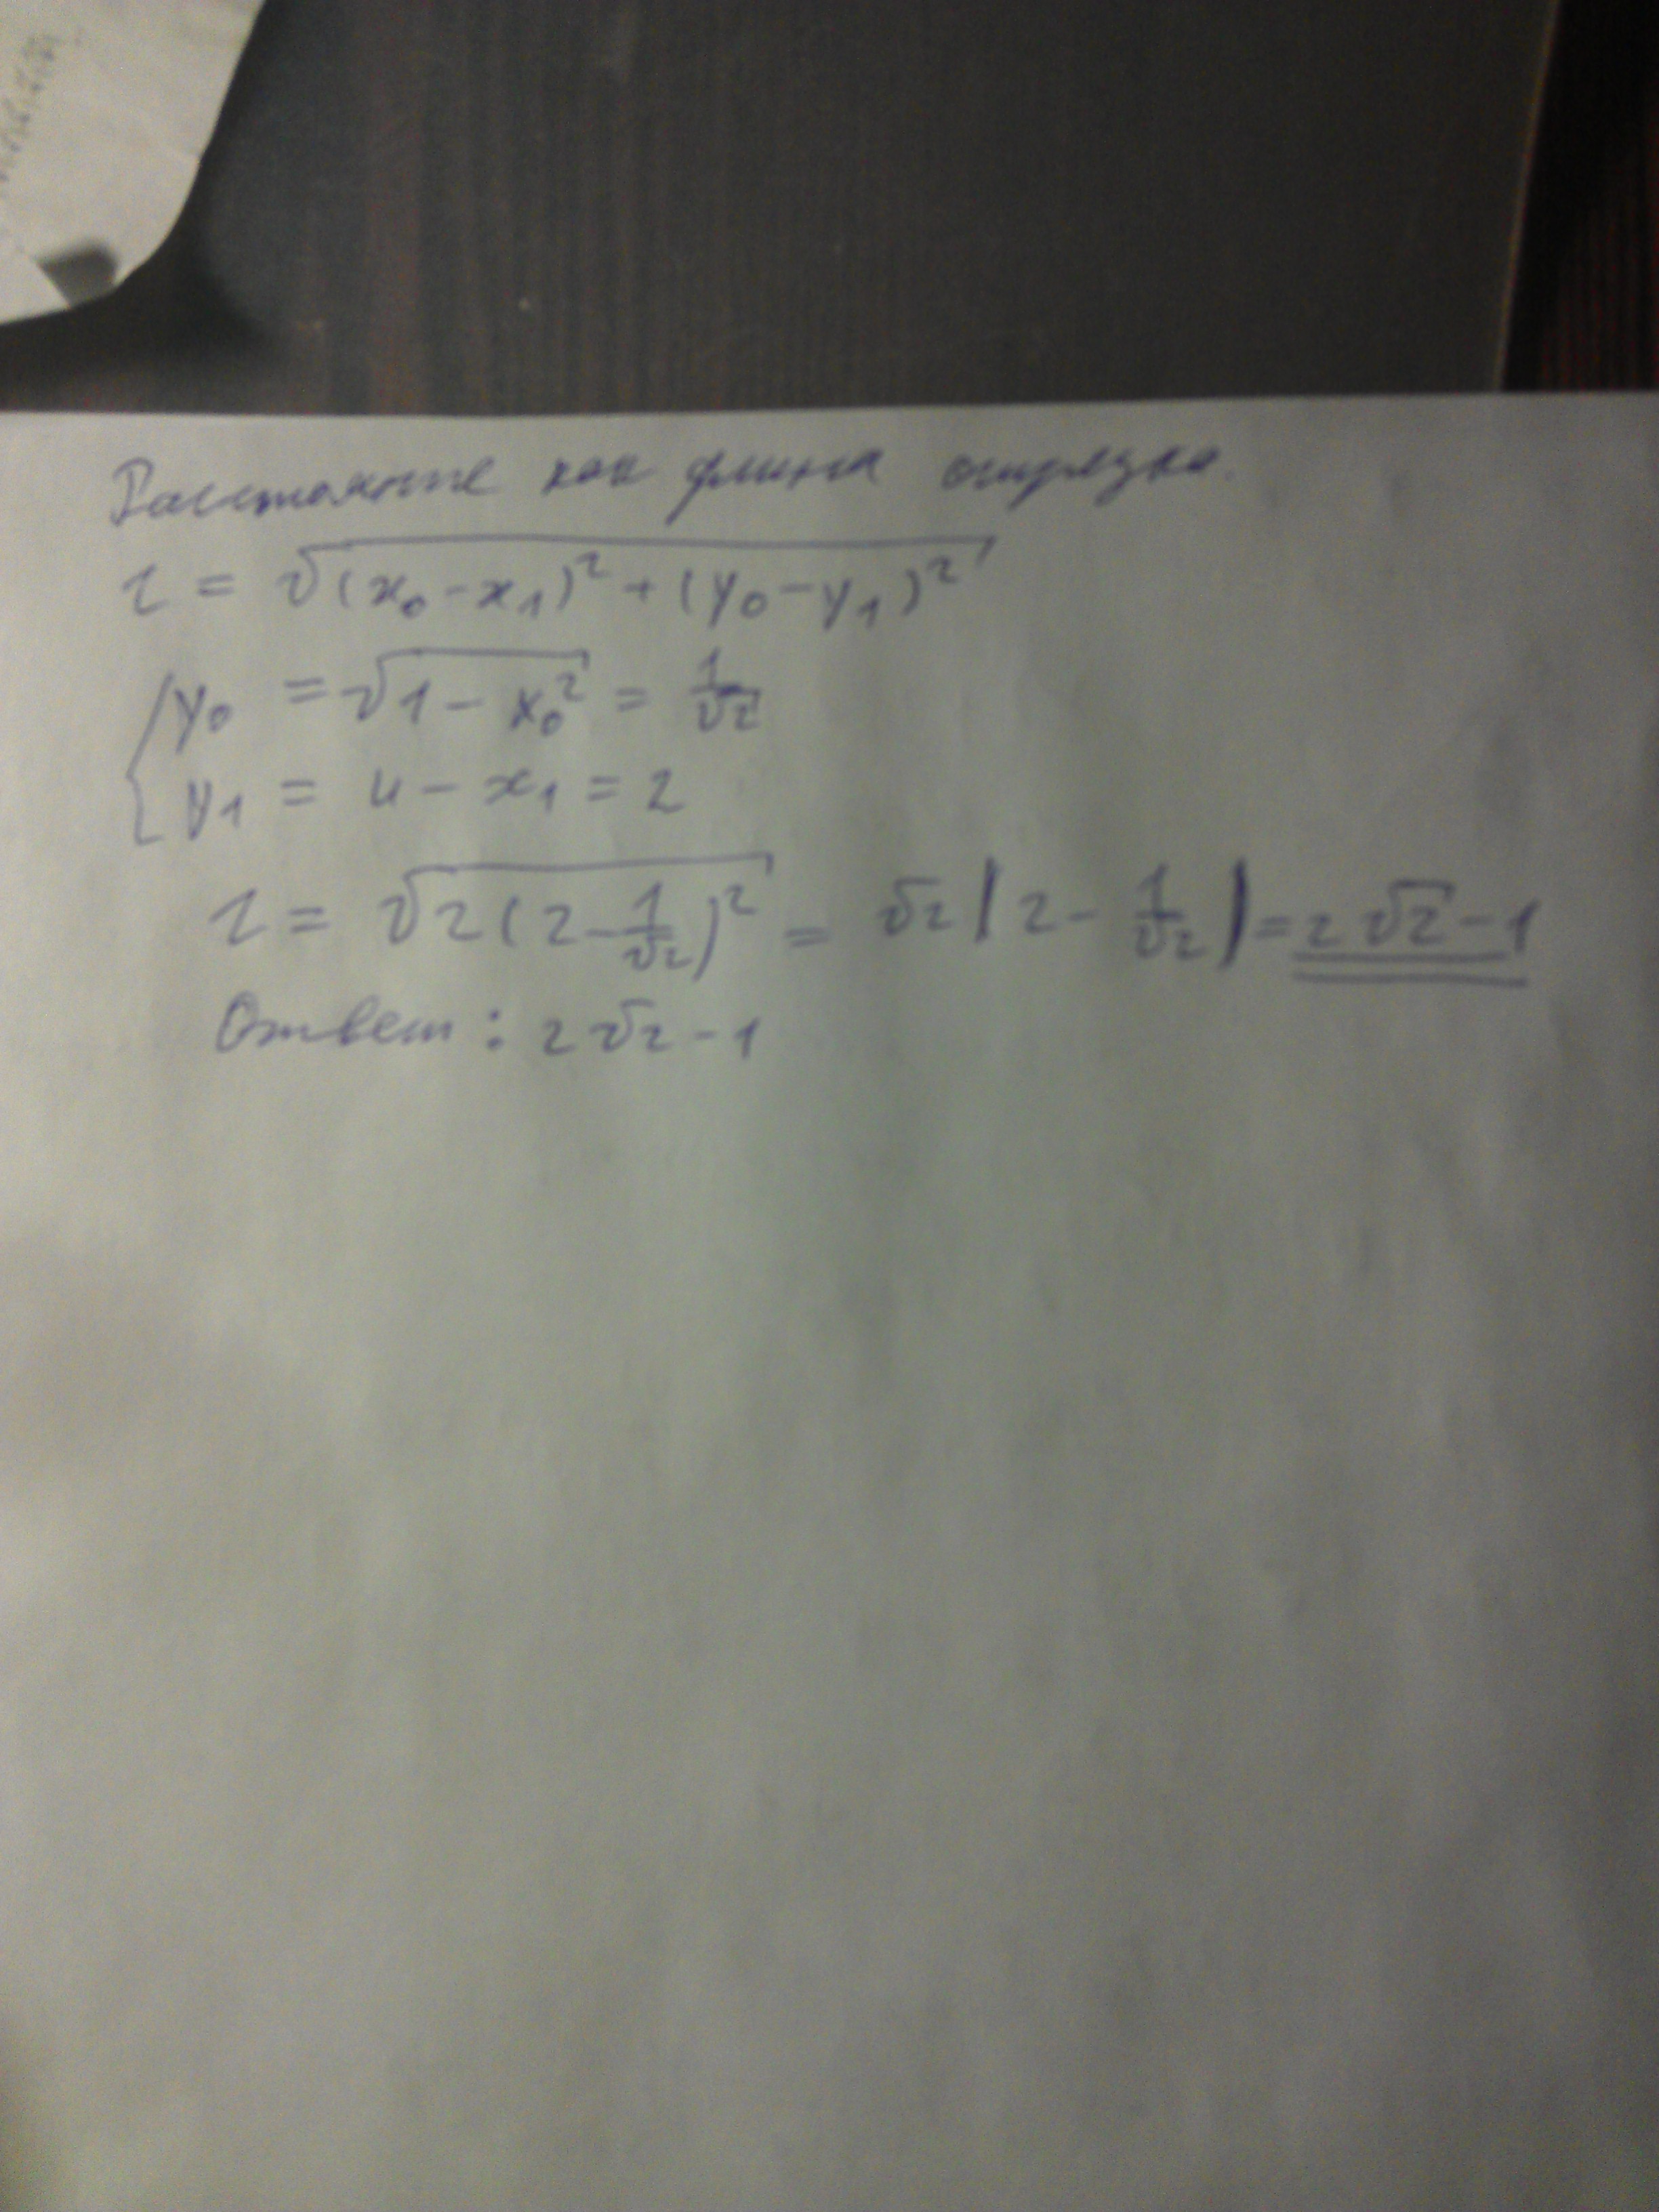 Расстояние как длина отрезка.
r = √((x₀-x₁)² + (y₀-y₁)²)
{ y₀ = √(1 - x₀²) = 1/√2
y₁ = 4 - x₁ = 2
r = √(2(2 - 1/√2)²) = √2 |2 - 1/√2| = 2√2 - 1
Ответ: 2√2 - 1